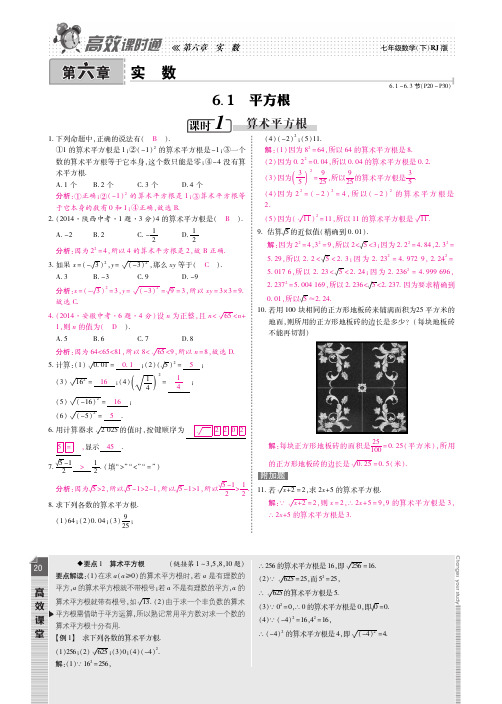 高效课时通 <<< 第六章 实 数
七年级数学(下)RJ版
第六章 实 数
6.1~6.3节(P20~P30)
6.1 平方根
课时1 算术平方根
1. 下列命题中,正确的说法有( B ).
①1的算术平方根是1;②(-1)²的算术平方根是-1;③一个
数的算术平方根等于它本身,这个数只能是零;④-4没有算
术平方根.
A. 1个 B. 2个 C. 3个 D. 4个
分析:①正确;②(-1)²的算术平方根是1;③算术平方根等
于它本身的数有0和1;④正确,故选B.
2. (2014·陕西中考·1题·3分)4的算术平方根是( B ).
A. -2 B. 2 C. -1/2 D. 1/2
分析:因为2²=4,所以4的算术平方根是2,故B正确.
3. 如果x=(-√3)²,y=√(-3)²,那么xy等于( C ).
A. 3 B. -3 C. 9 D. -9
分析:x=(-√3)²=3,y=√(-3)²=√9=3,所以xy=3×3=9.
故选C.
4. (2014·安徽中考·6题·4分)设n为正整,且n<√65<n+
1,则n的值为( D ).
A. 5 B. 6 C. 7 D. 8
分析:因为64<65<81,所以8<√65<9,所以n=8,故选D.
5. 计算:(1)√0.01=0.1;(2)(√5)²=5;
(3)√16²=16;(4)(√(1/4))²=1/4;
(5)√(-16)²=16;
(6)√(-5)²=5.
6. 用计算器求√2 025的值时,按键顺序为 √ 2 0 2
5 = ,显示 45 .
7. (√5-1)/2 > 1/2.(填“>”“<”“=”)
分析:因为√5>2,所以√5-1>2-1,所以√5-1>1,所以(√5-1)/2>1/2.
8. 求下列各数的算术平方根.
(1)64;(2)0.04;(3)9/25;
(4)(-2)²;(5)11.
解:(1)因为8²=64,所以64的算术平方根是8.
(2)因为0.2²=0.04,所以0.04的算术平方根是0.2.
(3)因为(3/5)²=9/25,所以9/25的算术平方根是3/5.
(4)因为2²=(-2)²=4,所以(-2)²的算术平方根是
2.
(5)因为(√11)²=11,所以11的算术平方根是√11.
9. 估算√5的近似值(精确到0.01).
解:因为2²=4,3²=9,所以2<√5<3;因为2.2²=4.84,2.3²=
5.29,所以2.2<√5<2.3;因为2.23²=4.972 9,2.24²=
5.017 6,所以2.23<√5<2.24;因为2.236²=4.999 696,
2.237²=5.004 169,所以2.236<√5<2.237.因为要求精确到
0.01,所以√5≈2.24.
10. 若用100块相同的正方形地板砖来铺满面积为25平方米的
地面,则所用的正方形地板砖的边长是多少?(每块地板砖
不能再切割)
解:每块正方形地板砖的面积是25/100=0.25(平方米),所用
的正方形地板砖的边长是√0.25=0.5(米).
附加题
11. 若√x+2=2,求2x+5的算术平方根.
解:∵√x+2=2,则x=2,∴2x+5=9,9的算术平方根是3,
∴2x+5的算术平方根是3.
20
高效课堂
◆要点1 算术平方根 (链接第1~3,5,8,10题)
要点解读:(1)在求a(a≥0)的算术平方根时,若a是有理数的
平方,a的算术平方根就不带根号;若a不是有理数的平方,a的
算术平方根就带有根号,如√13.(2)由于求一个非负数的算术
平方根需借助于平方运算,所以熟记常用平方数对求一个数的
算术平方根十分有用.
【例1】 求下列各数的算术平方根.
(1)256;(2)√625;(3)0;(4)(-4)².
解:(1)∵16²=256,
∴256的算术平方根是16,即√256=16.
(2)∵√625=25,而5²=25,
∴√625的算术平方根是5.
(3)∵0²=0,∴0的算术平方根是0,即√0=0.
(4)∵(-4)²=16,4²=16,
∴(-4)²的算术平方根是4,即√(-4)²=4.
Changes your study